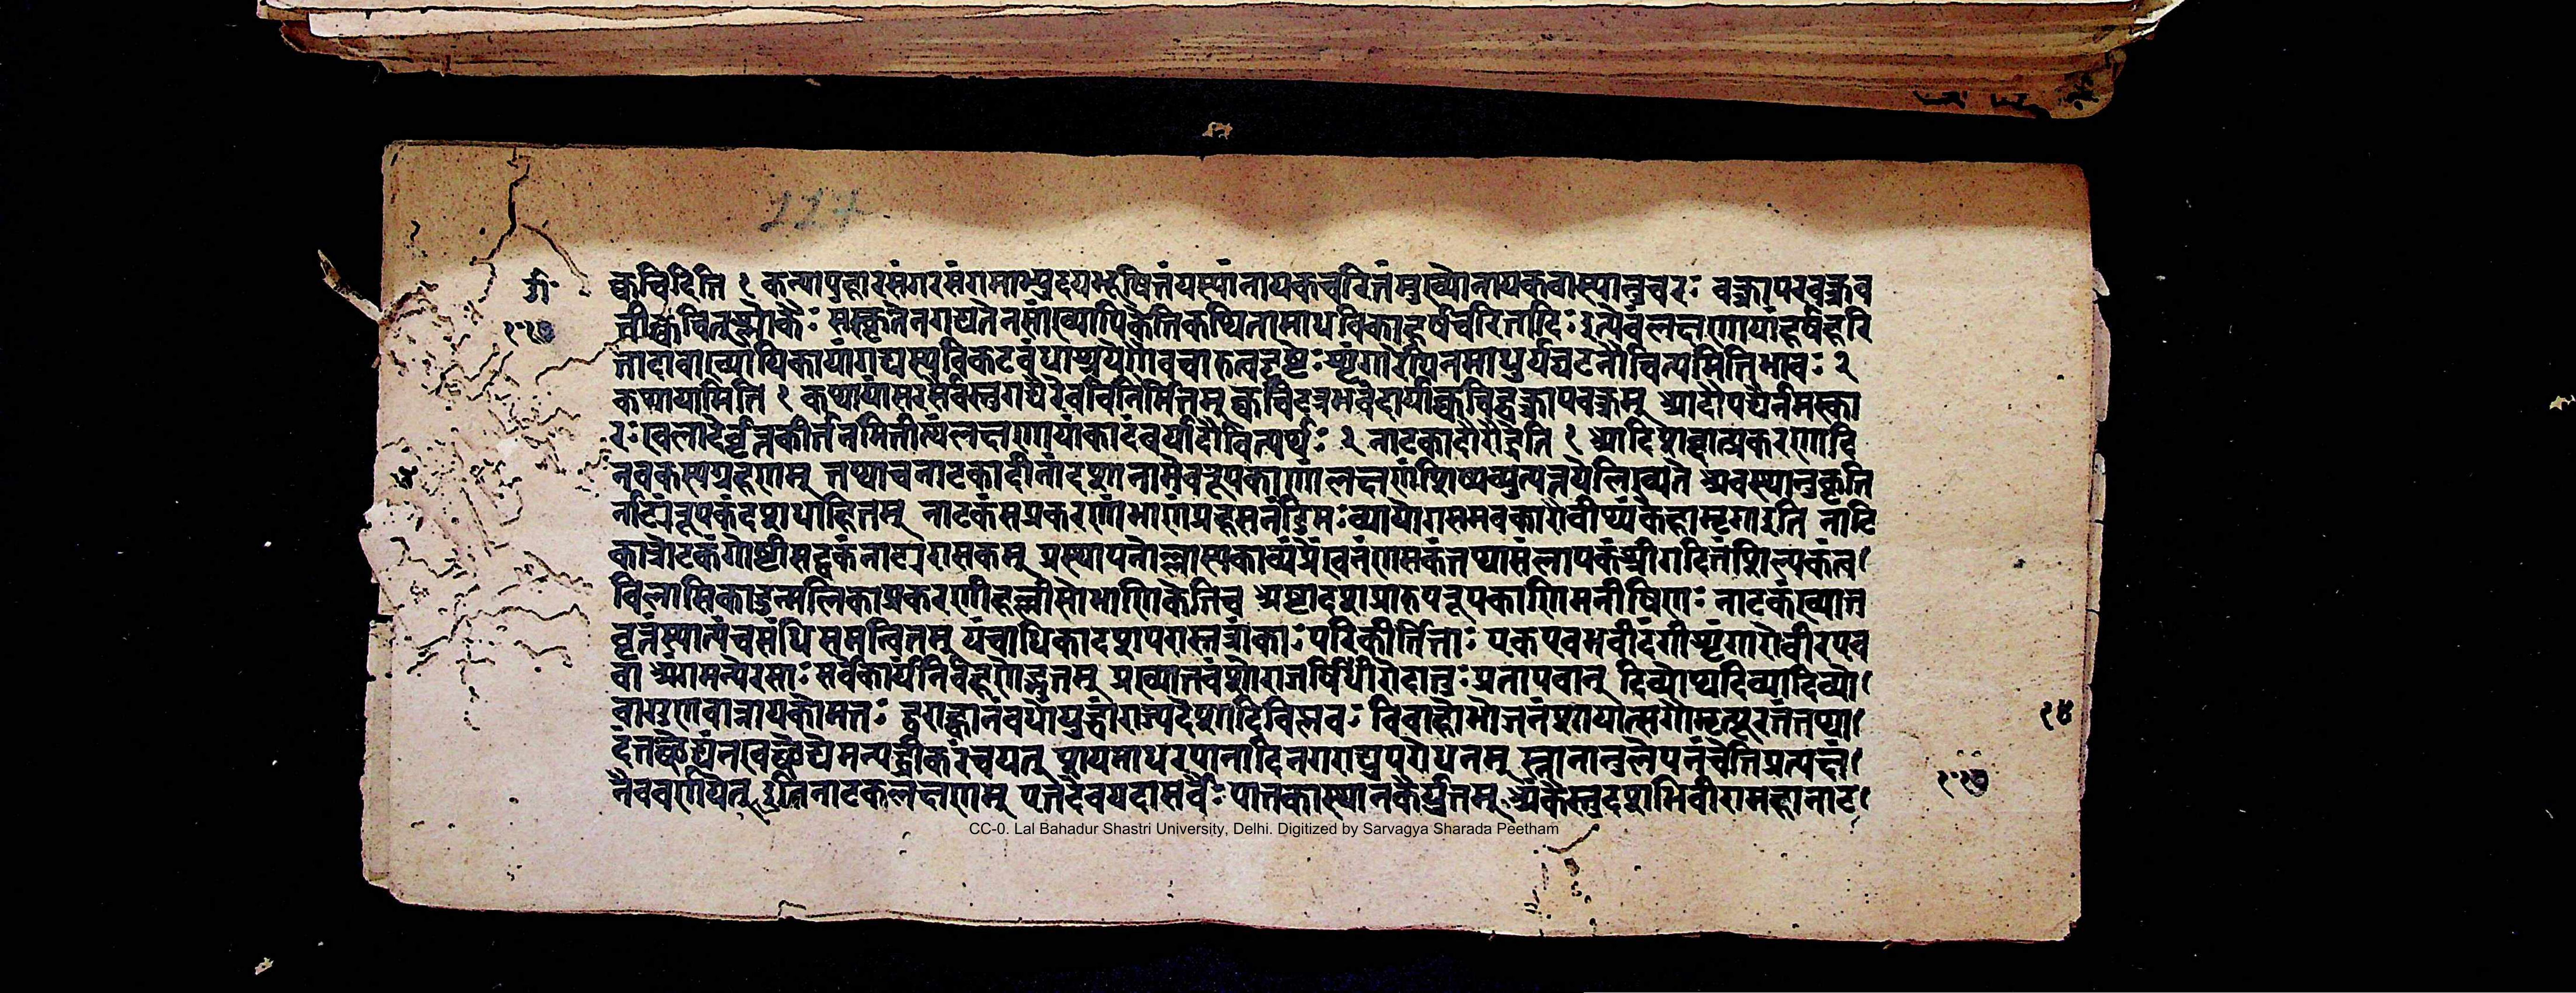 117
क्वचिदिति १ कन्यापहारसंगरसंगमाभ्युदयभूषितंयस्यांनायकचरितंमुख्योनायकवास्यानुचरः वक्त्रापरवक्त्रव
तीक्वचित्श्लोकैः संस्कृतेनगद्येनसाख्यायिकेतिकथितामाधविकाहर्षचरितादिः इत्येवंलक्षणायांहर्षहरि
तादावाख्यायिकायांगद्यस्यविकटबंधाश्रयेणैवचारुत्वदृष्टेः शृंगारेपिनमाधुर्यघटनौचित्यमितिभावः २
कथायामिति १ कथायांसरसंवस्तुगद्यैरेवविनिर्मितम् क्वचिदत्रभवेदार्याक्वचिद्वक्त्रापवक्त्रम् आदौपद्यैर्नमस्का
रः खलादेर्वृत्तकीर्तनमितीत्थंलक्षणायांकादंबर्यादौवित्यर्थः २ नाटकादौरौद्रेति १ आदिशब्दात्प्रकरणादि
नवकस्यग्रहणम् तथाचनाटकादीनांदशानामेवरूपकाणांलक्षणंशिष्यव्युत्पत्तयेलिख्यते अवस्थानुकृति
र्नाट्यंरूपकंदशधाहितम् नाटकंसप्रकरणंभाणंप्रहसनंडिमः व्यायोगसमवकारौवीथ्यंकेहामृगाइति नाटि
कात्रोटकंगोष्टीसट्टकंनाट्यरासकम् प्रस्थापनोल्लास्यकाव्यंप्रेंखनंरासकंतथासंलापकंश्रीगदितंशिल्पकंच
विलासिकादुन्मलिकाप्रकरणीहल्लीसोभाणिकेतिच अष्टादशप्राहुपरूपकाणिमनीषिणः नाटकंख्यात
वृत्तंस्यात्पंचसंधिसमन्वितम् पंचाधिकादशपरास्तत्रांकाः परिकीर्तिताः एकएवभवेदंगीशृंगारोवीरएव
वा अंगमन्येरसाः सर्वेकार्यनिर्वहणेद्भुतम् प्रख्यातवंशोराजर्षिर्धीरोदात्तः प्रतापवान् दिव्योथदिव्यादिव्यो
वागुणवान्नायकोमतः दूराह्वानंवधोयुद्धंराज्यदेशादिविप्लवः विवाहोभोजनंशापोत्सर्गौमृत्यूरतंतथा
दंतच्छेद्यंनखच्छेद्यमन्यद्व्रीडाकरंचयत् शयमाधरपानादिनगराद्युपरोधनम् स्नानानुलेपनंचेतिप्रत्यक्षं
नैववर्णयेत् इतिनाटकलक्षणम् एतदेवयदासर्वैः पाताकास्थानकैर्युतम् अंकैस्तुदशभिर्वीरामहानाट
१४
CC-0. Lal Bahadur Shastri University, Delhi. Digitized by Sarvagya Sharada Peetham